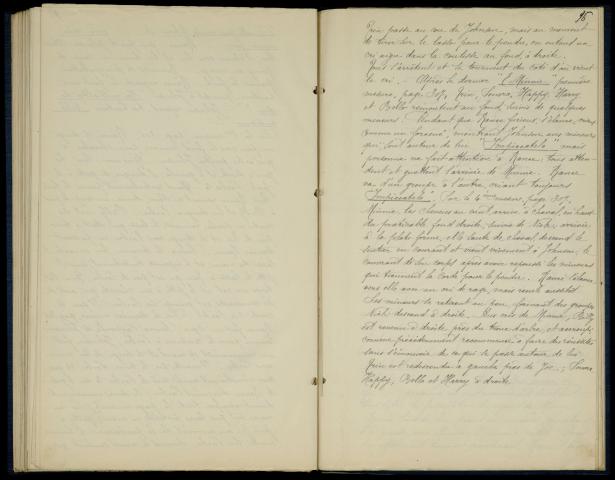 95
passe au cou de Johnson, mais au moment
de tirer sur le lasso pour le pendre, on entend un
cri aigu dans la coulisse au fond, à droite.
Tous s'arrêtent et se tournent du côté d'où vient
le cri. - Après le dernier "È Minnie" première
mesure, page 307, Trin, Sonora, Happy, Harry
et Bello remontent au fond, suivis de quelques
mineurs. Pendant que Rance furieux, s'élance, criant
comme un forcené, montrant Johnson aux mineurs
qui sont autour de lui "Impiccatelo" mais
personne ne fait attention à Rance: tous atten-
dent et guettent l'arrivée de Minnie. Rance
va d'un groupe à l'autre, criant toujours
"Impiccatelo". Sur la 4ème mesure, page 307,
Minnie, les cheveux au vent, arrive à cheval, en haut
du praticable fond droite, suivie de Nick, arrivée
à la plate forme, elle saute de cheval, descend le
sentier en courant et vient vivement à Johnson, le
couvrant de son corps après avoir repoussé les mineurs
qui tiennent la corde pour le pendre. Rance s'élance
vers elle avec un cri de rage, mais recule aussitôt
Les mineurs se retirent un peu, formant des groupes
Nick descend à droite. Billy
est revenu à droite, près du tronc d'arbre, et accroupi
comme précédemment recommence à faire des réussites
sans s'émouvoir de ce qui se passe autour de lui.
Trin est redescendu à gauche près de Joe; Sonora,
Happy, Bello et Harry à droite.